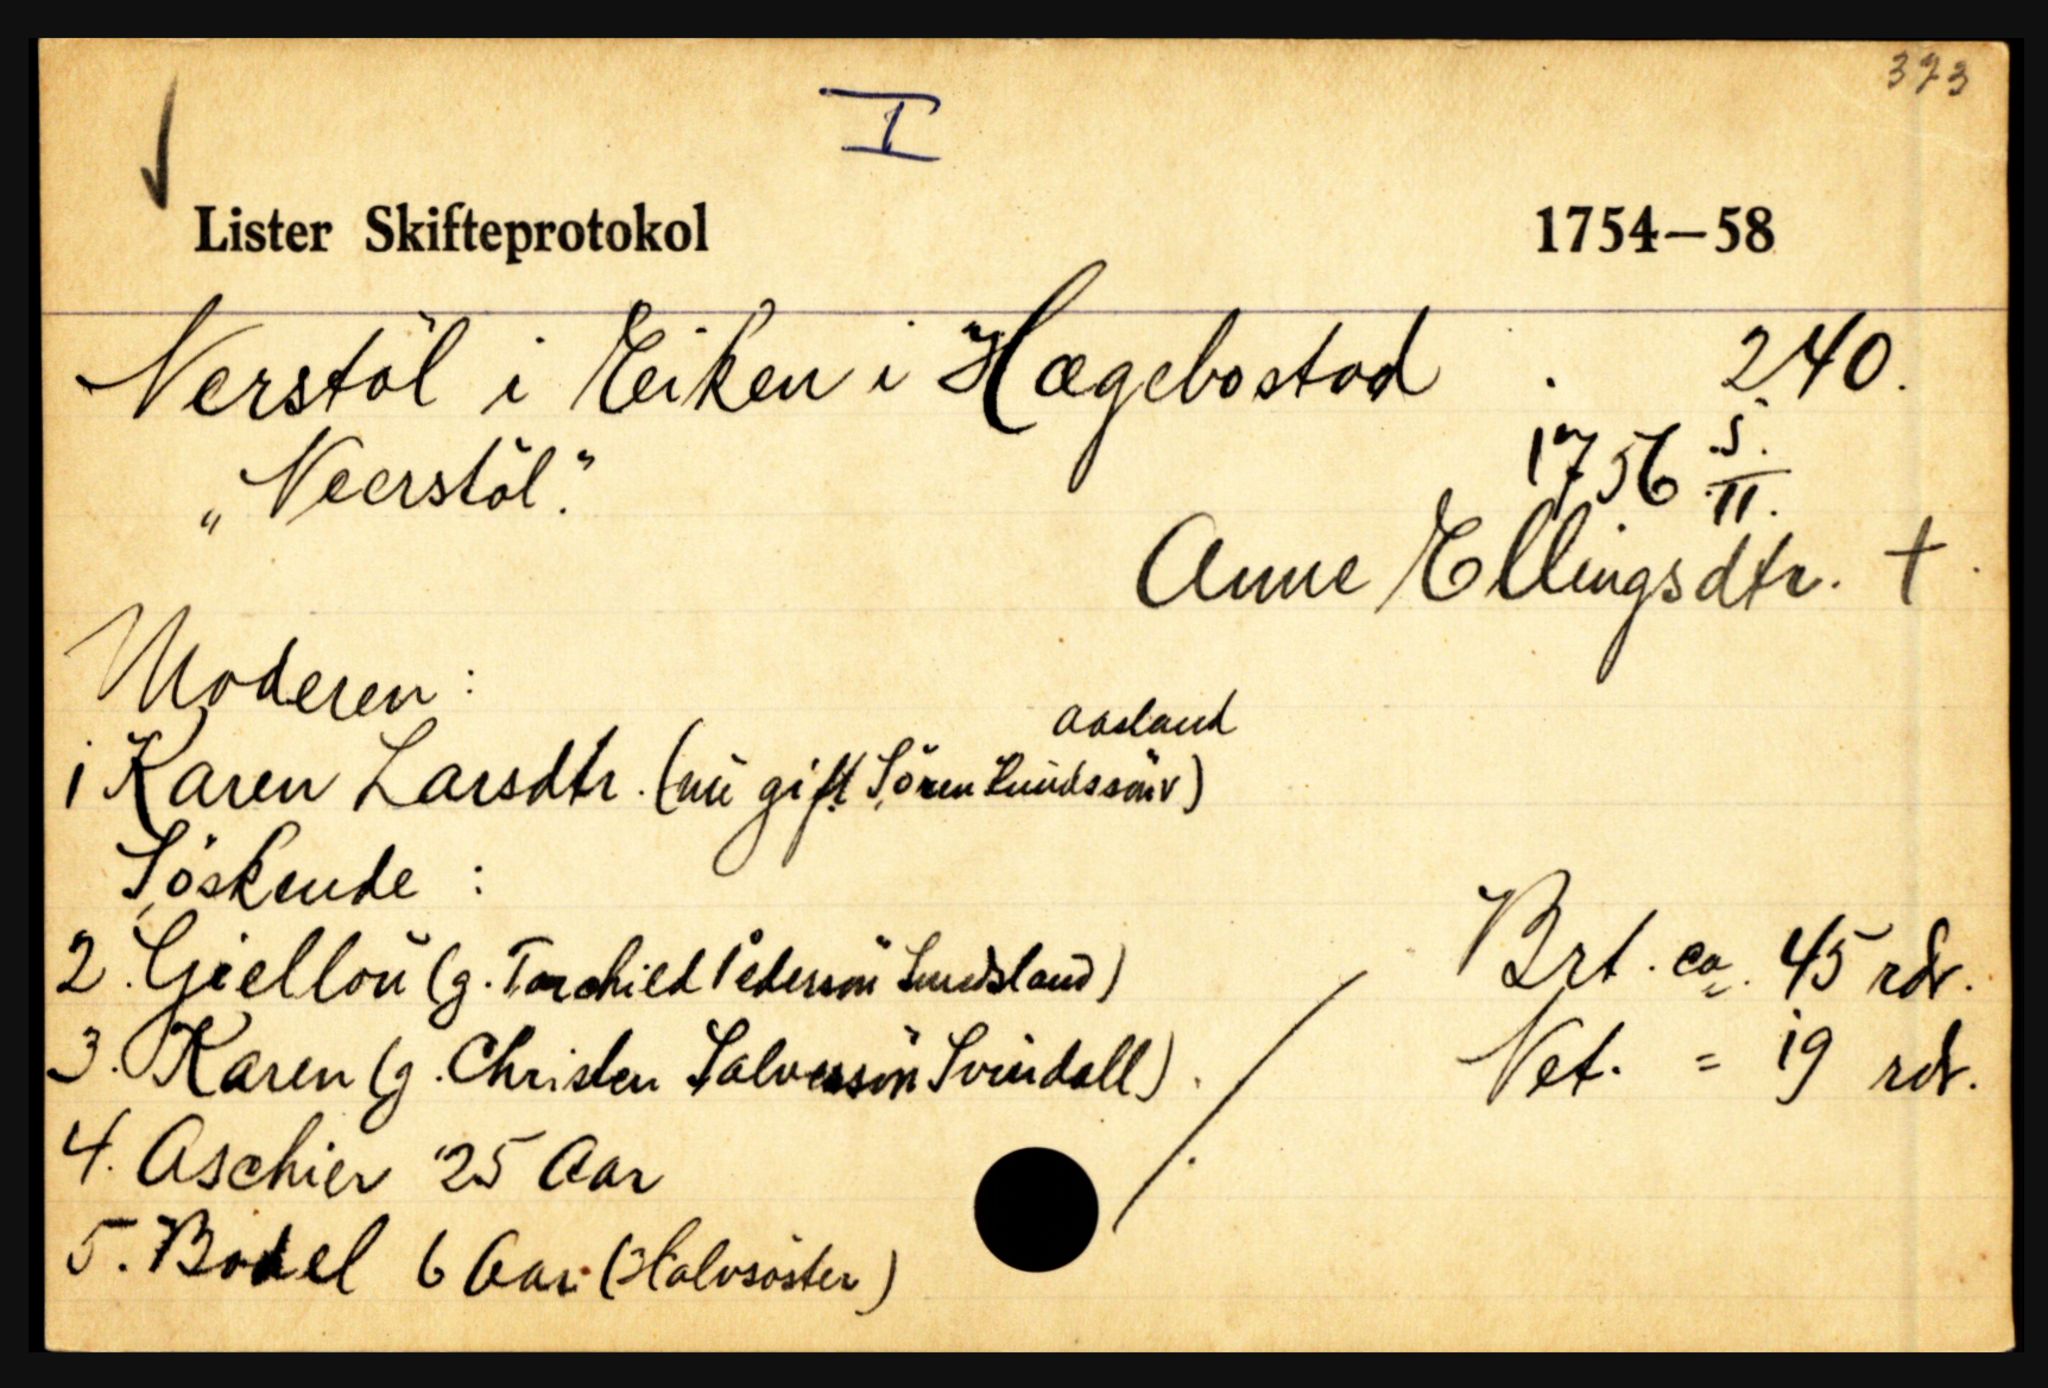 373
I
Lister Skifteprotokol 1754—58
Nerstöl i Eiken i Hægebostad . 240.
„Neerstöl." 1756 5./II.
Anne Ellingsdtr. †
Moderen:
1 Karen Larsdtr. (nu gift Sören aasland)
Söskende:
2. Giellou (g. Torchild Pedersön Sundsland) Brt. ca. 45 rdr.
3. Karen (g. Christen Salvessön Svindall) Net. = 19 rdr.
4. Aschier 25 Aar
5. Bodel 6 Aar (Halvsöster)